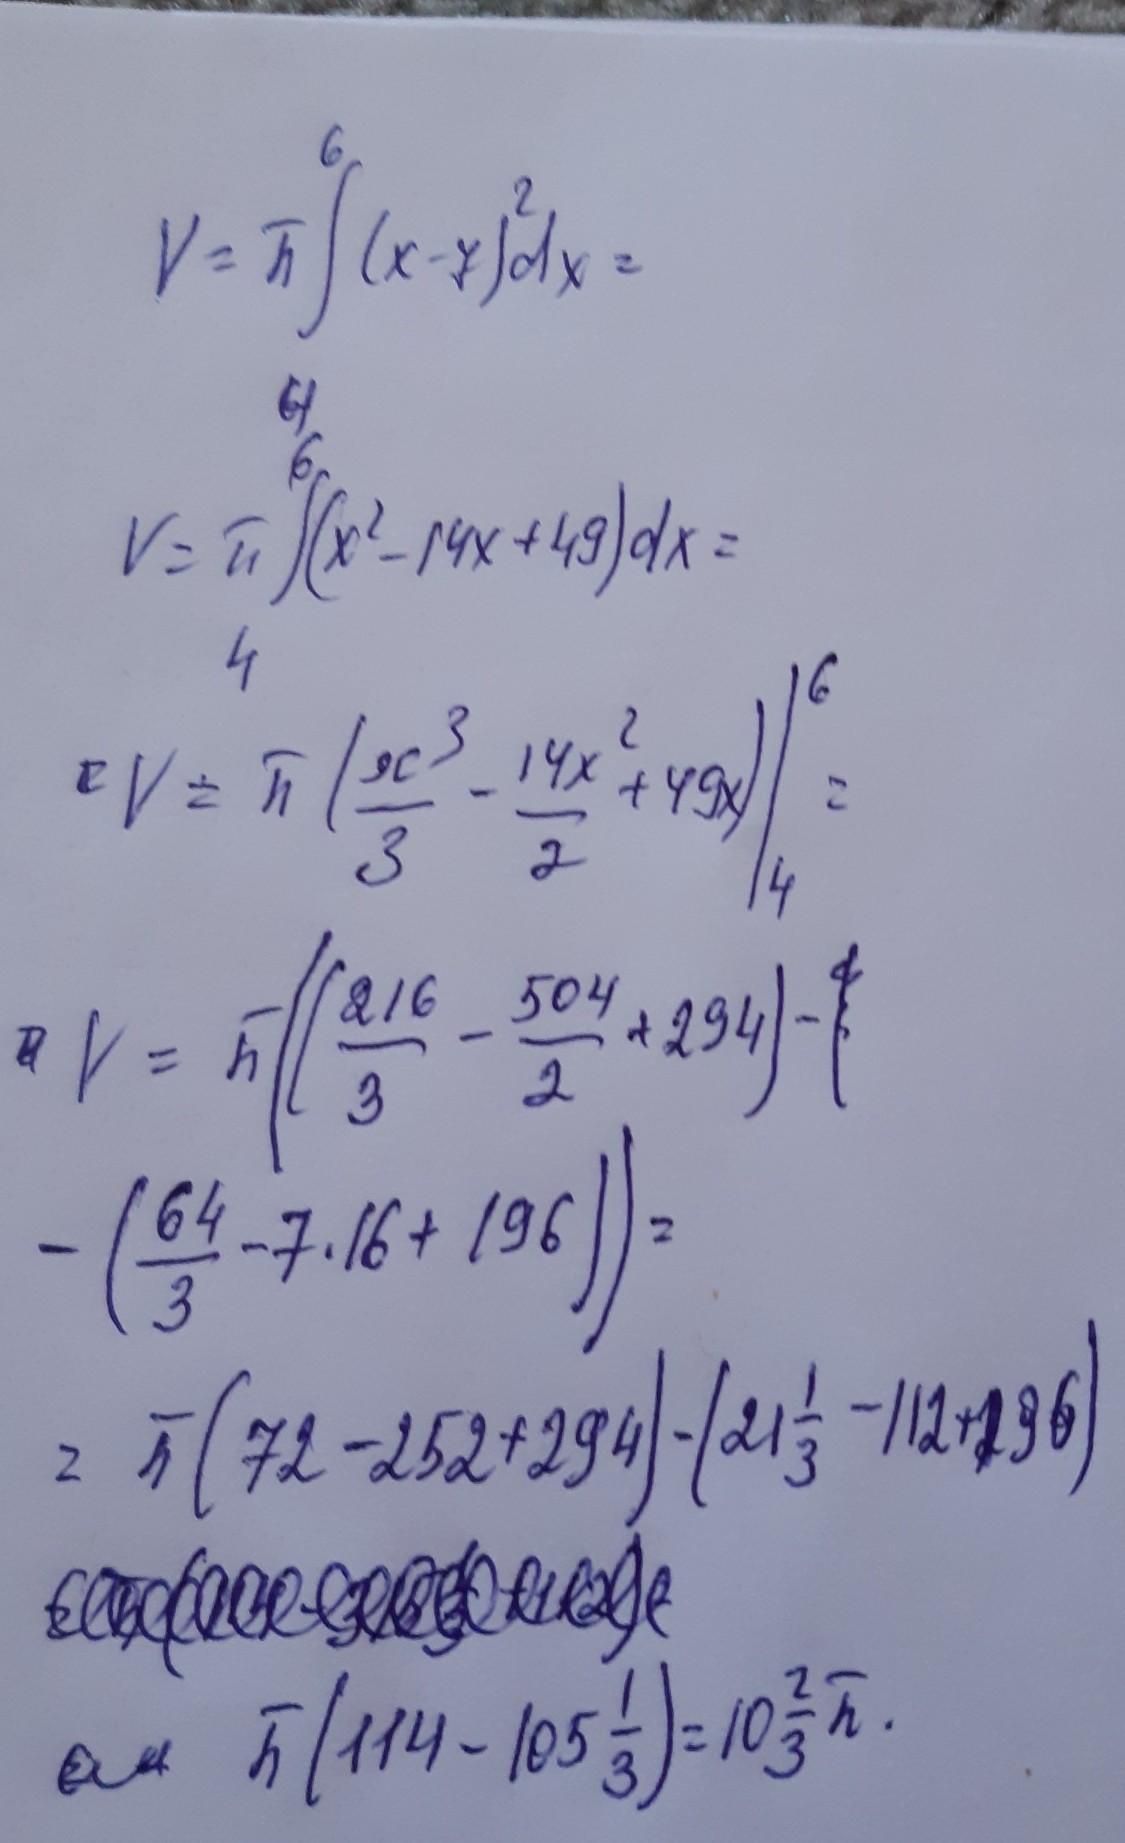 V = π∫₄⁶ (x-7)² dx =
V = π∫₄⁶ (x² - 14x + 49) dx =
V = π (x³/3 - 14x²/2 + 49x) |₄⁶ =
V = π((216/3 - 504/2 + 294) -
- (64/3 - 7·16 + 196)) =
= π(72 - 252 + 294) - (21 1/3 - 112 + 196)
π(114 - 105 1/3) = 10 2/3 π.